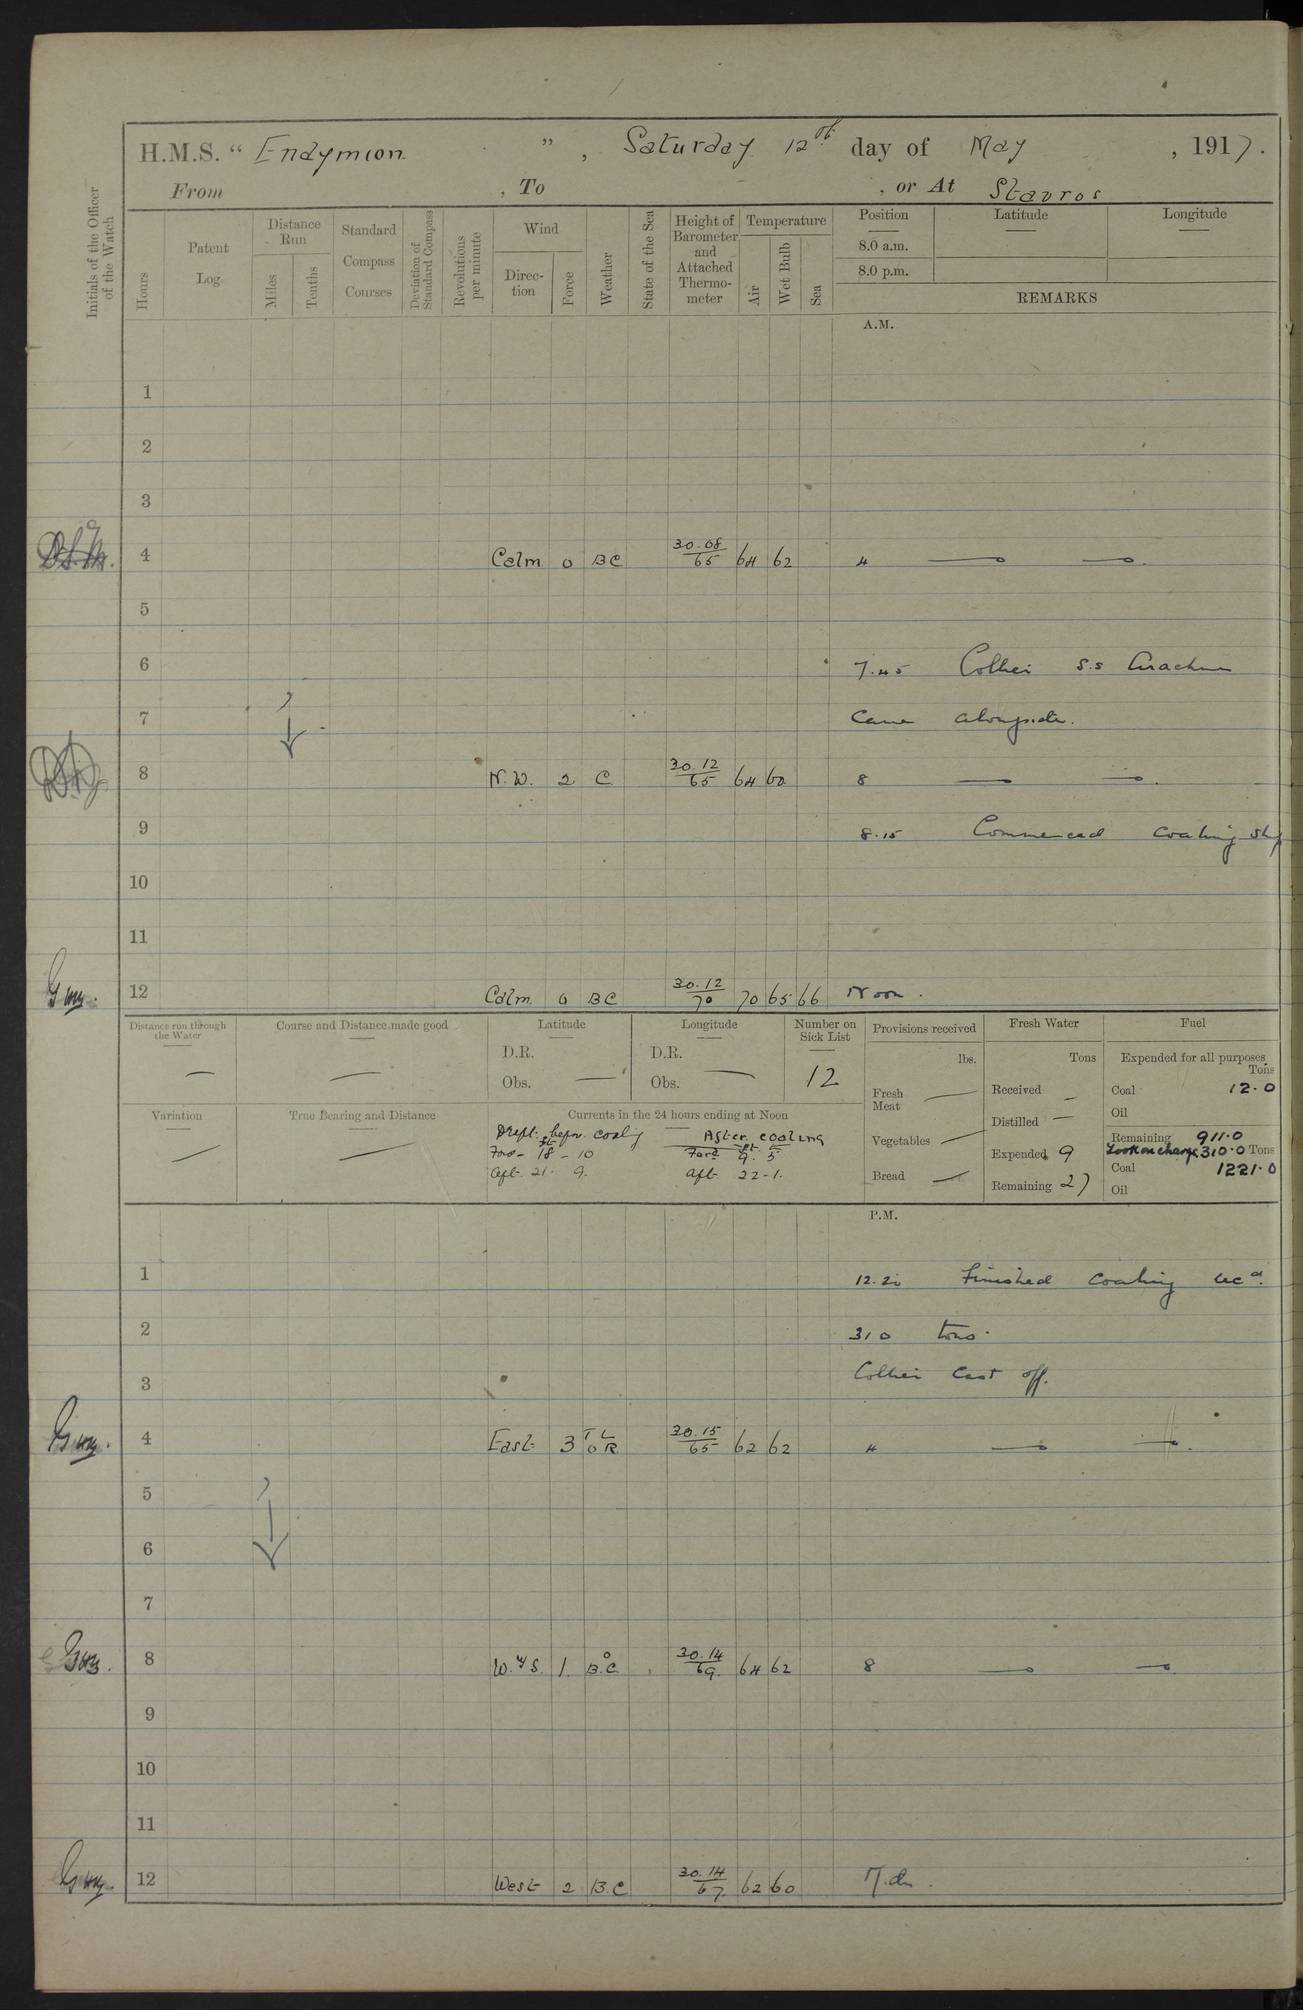 H.M.S. “ Endymion ” , Saturday 12th day of May , 1917.
From , To , or At Stavros
Initials of the Officer of the Watch
Hours
Patent Log
Distance Run
Miles
Tenths
Standard Compass Courses
Deviation of Standard Compass
Revolutions per minute
Wind
Direction
Force
Weather
State of the Sea
Height of Barometer and Attached Thermometer
Temperature
Air
Wet Bulb
Sea
Position
8.0 a.m.
8.0 p.m.
Latitude
Longitude
REMARKS
A.M.
1
2
3
4 Calm 0 BC 30.08/65 64 62 4
5
6 7.45 Collier S.S
7 Came alongside.
8 N.W. 2 C 30.12/65 64 60 8
9 8.15 Commenced coaling ship
10
11
12 Calm 0 BC 30.12/70 70 65 66 Noon.
Distance run through the Water
Course and Distance made good
Latitude
D.R.
Obs.
Longitude
D.R.
Obs.
Number on Sick List
12
Provisions received
lbs.
Fresh Meat
Vegetables
Bread
Fresh Water
Tons
Received
Distilled
Expended 9
Remaining 27
Fuel
Expended for all purposes
Tons
Coal 12.0
Oil
Remaining 911.0
Took on charge 310.0 Tons
Coal 1221.0
Oil
Variation
True Bearing and Distance
Currents in the 24 hours ending at Noon
Draft: before coaling
Ford 18 - 10
Aft. 21. 9.
After coaling
Ford 5
Aft 22-1.
P.M.
1 12.20 Finished coaling recd.
2 310 tons.
3 Collier cast off.
4 East 3 TL OR 30.15/65 62 62 4
5
6
7
8 W.yS. 1 B.C. 30.14/69. 64 62 8
9
10
11
12 West 2 B.C 30.14/67 62 60 M.dn.